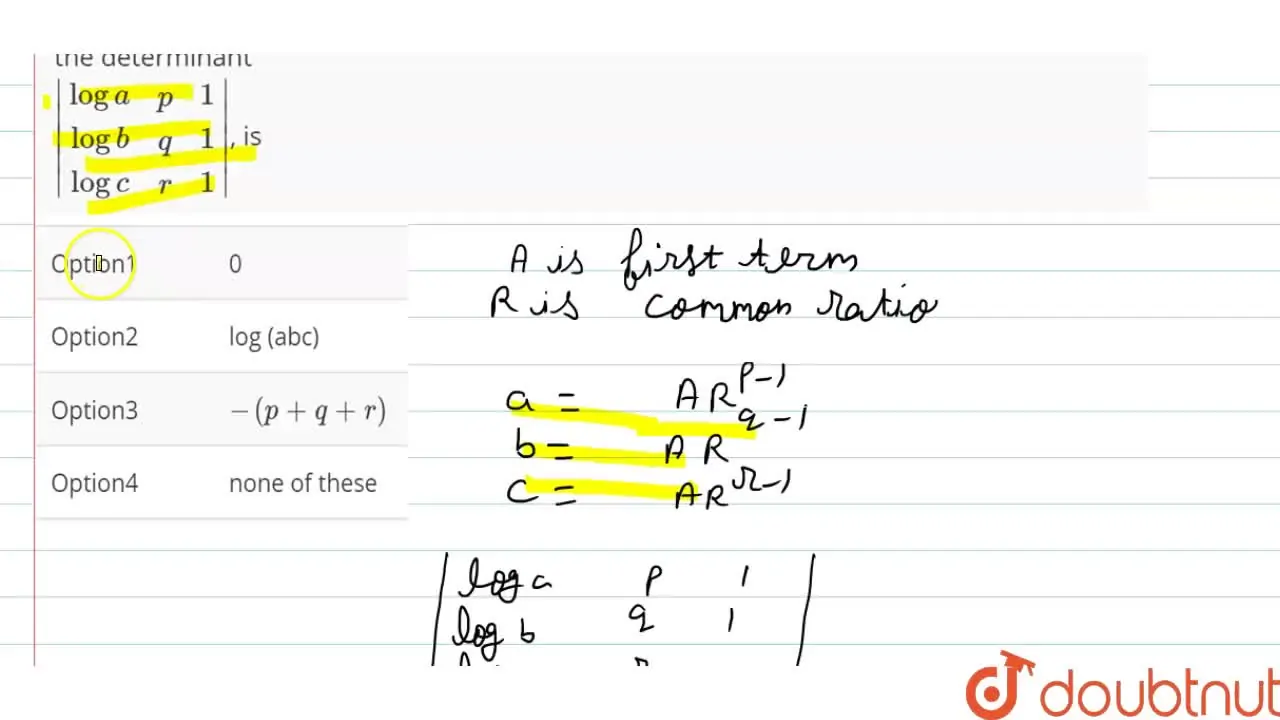 the determinant
log a p 1
log b q 1 , is
log c r 1
Option1 0
Option2 log (abc)
Option3 − (p + q + r)
Option4 none of these
A is first term
R is common ratio
a = AR^p-1
b = AR^q-1
c = AR^r-1
log a p 1
log b q 1
doubtnut